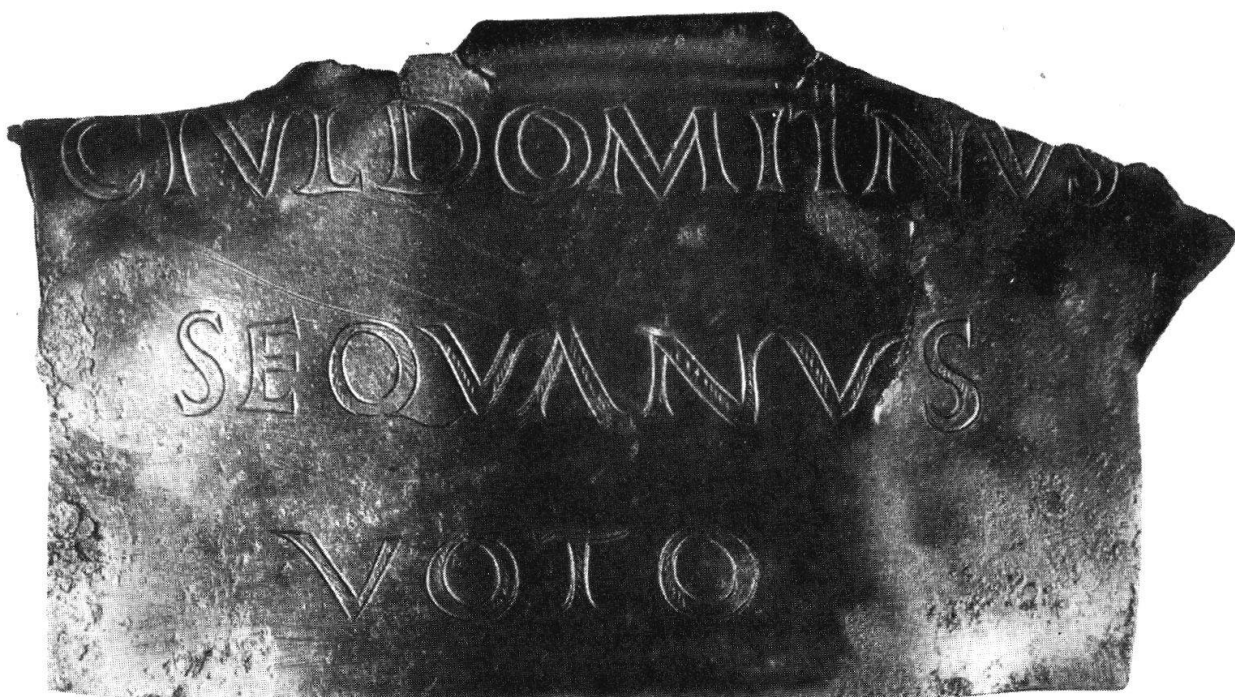 C IVL DOMITINVS
SEQVANVS
VOTO